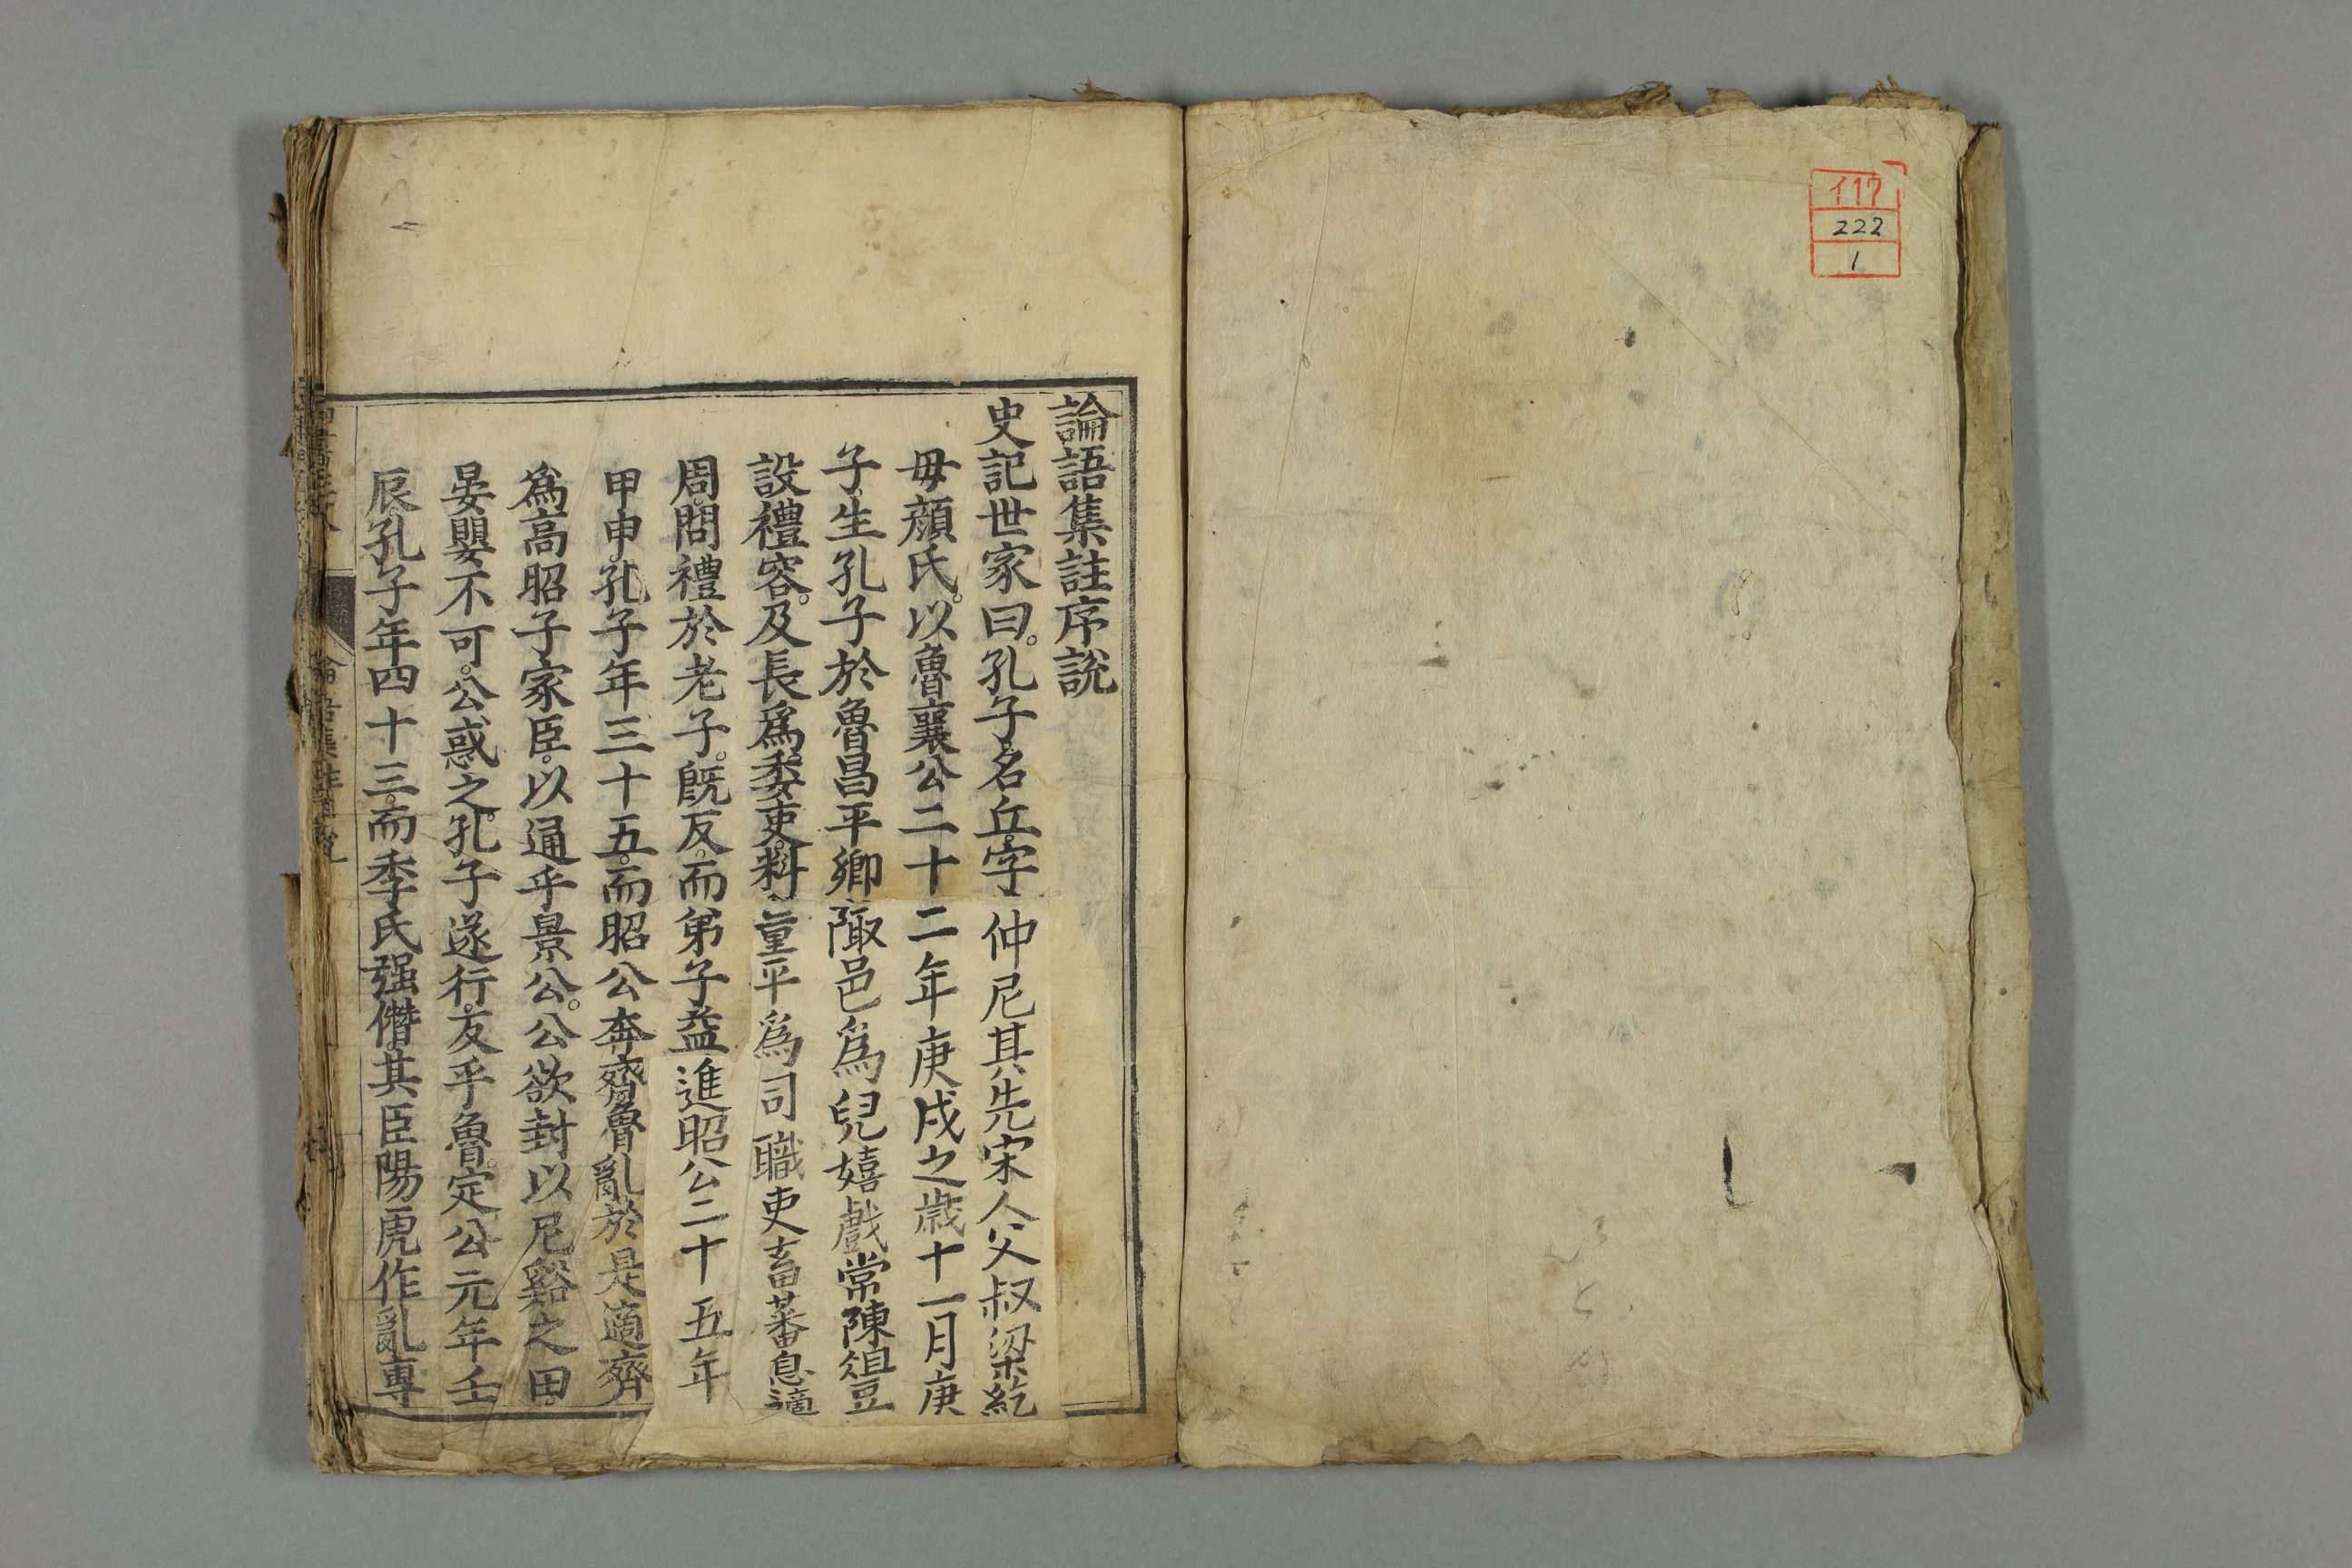 イ17
222
1
論語集註序說
史記世家曰。孔子名丘。字仲尼其先宋人父叔梁紇
毋顔氏。以魯襄公二十二年庚戌之歲十一月庚
子。生孔子於魯昌平鄉陬邑爲兒嬉戲常陳俎豆
設禮容。及長爲委吏。料量平爲司職吏畜蕃息適
周。問禮於老子。旣反。而弟子益進昭公二十五年
甲申。孔子年三十五。而昭公奔齊魯亂於是適齊
爲高昭子家臣。以通乎景公。公欲封以尼谿之田。
晏嬰不可。公惑之。孔子遂行。反乎魯。定公元年壬
辰。孔子年四十三。而季氏强僭。其臣陽虎作亂專
論語集註序說